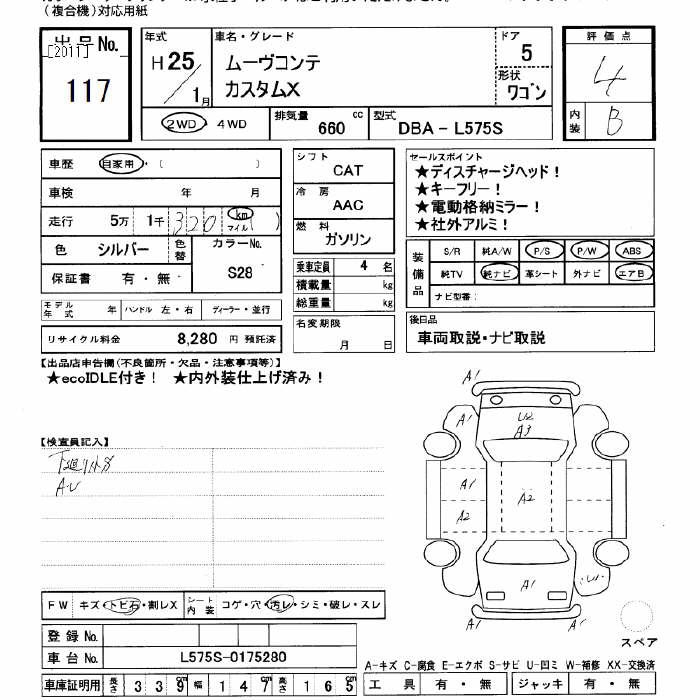 (複合機)対応用紙
出品No.
[2011]
117
年式
H25/1月
車名・グレード
ムーヴコンテ
カスタムX
ドア
5
形状
ワゴン
評価点
4
内装
B
2WD・4WD
排気量
660 cc
型式
DBA - L575S
車歴 自家用・( )
車検 年 月
走行 5万 1千 320 km マイル ( )
色 シルバー
色替
カラーNo.
S28
保証書 有・無
モデル年式 年 ハンドル 左・右 ディーラー・並行
リサイクル料金 8,280 円 預託済
シフト
CAT
冷房
AAC
燃料
ガソリン
乗車定員 4 名
積載量 kg
総重量 kg
名変期限
月 日
セールスポイント
★ディスチャージヘッド!
★キーフリー!
★電動格納ミラー!
★社外アルミ!
装備品
S/R 純A/W P/S P/W ABS
純TV 純ナビ 革シート 外ナビ エアB
ナビ型番:
後日品
車両取説・ナビ取説
【出品店申告欄(不良箇所・欠品・注意事項等)】
★ecoIDLE付き! ★内外装仕上げ済み!
【検査員記入】
下廻り
AU
A1
A1
U2
A3
A1
A1
A2
A2
A1
スペア
FW キズ・トビ石・割レX
シート内装 コゲ・穴・汚レ・シミ・破レ・スレ
登録No.
車台No. L575S-0175280
車庫証明用 長さ 339 幅 147 高さ 165
A-キズ C-腐食 E-エクボ S-サビ U-凹ミ W-補修 XX-交換済
工具 有・無 ジャッキ 有・無